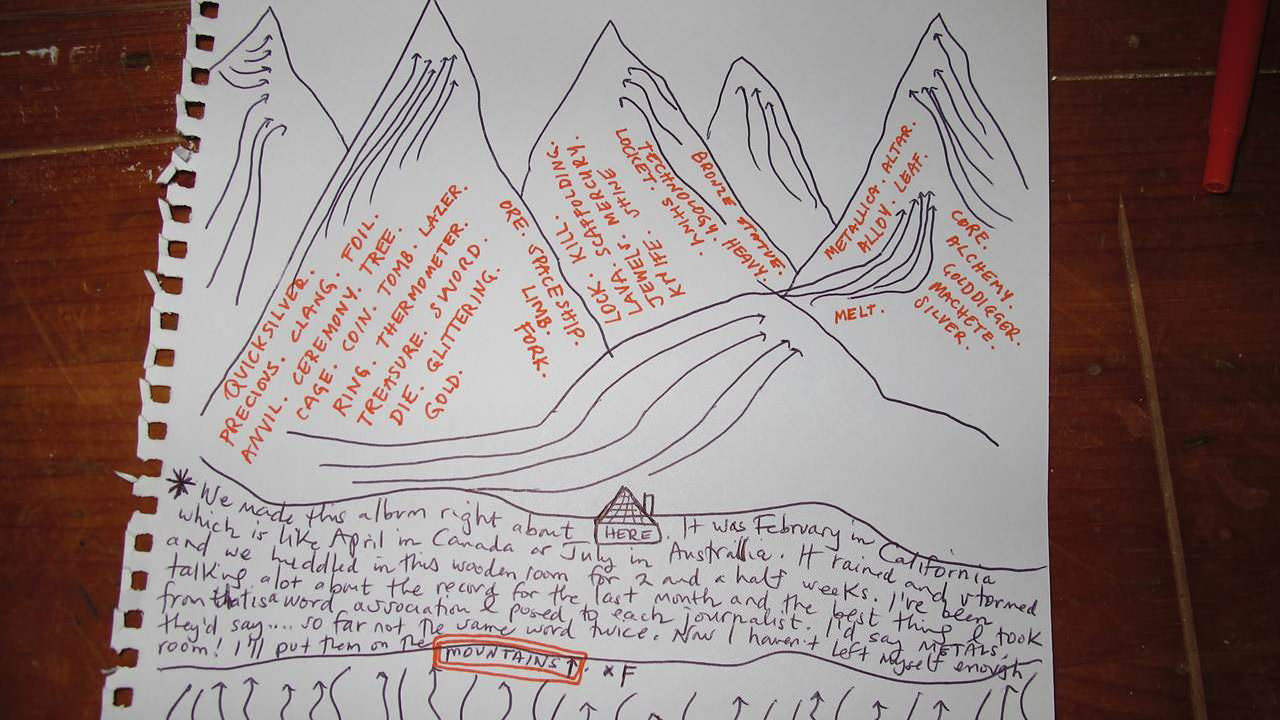 QUICKSILVER.
PRECIOUS. CLANG. FOIL.
ANVIL. CEREMONY. TREE.
CAGE. COIN. TOMB. LAZER.
RING. THERMOMETER.
TREASURE. SWORD.
DIE. GLITTERING.
GOLD.
ORE. SPACESHIP.
LIMB.
FORK.
LOCK. KILL. SCAFFOLDING.
LAVA. SCAFFOLDING.
JEWELS. MERCURY.
KNIFE. SHINE
LOCKET. SHINY.
TECHNOLOGY. HEAVY.
BRONZE STATUE.
METALLICA ALTAR.
ALLOY. LEAF.
MELT.
CORE.
ALCHEMY.
GOLDDIGGER.
MACHETE.
SILVER.
* We made this album right about HERE. It was February in California
which is like April in Canada or July in Australia. It rained and stormed
and we huddled in this wooden room for 2 and a half weeks. I've been
talking alot about the record for the last month and the best thing I took
from that is a word association I posed to each journalist. I'd say METALS,
they'd say.... so far not the same word twice. Now I haven't left myself enough
room! I'll put them on the MOUNTAINS ↑. × F